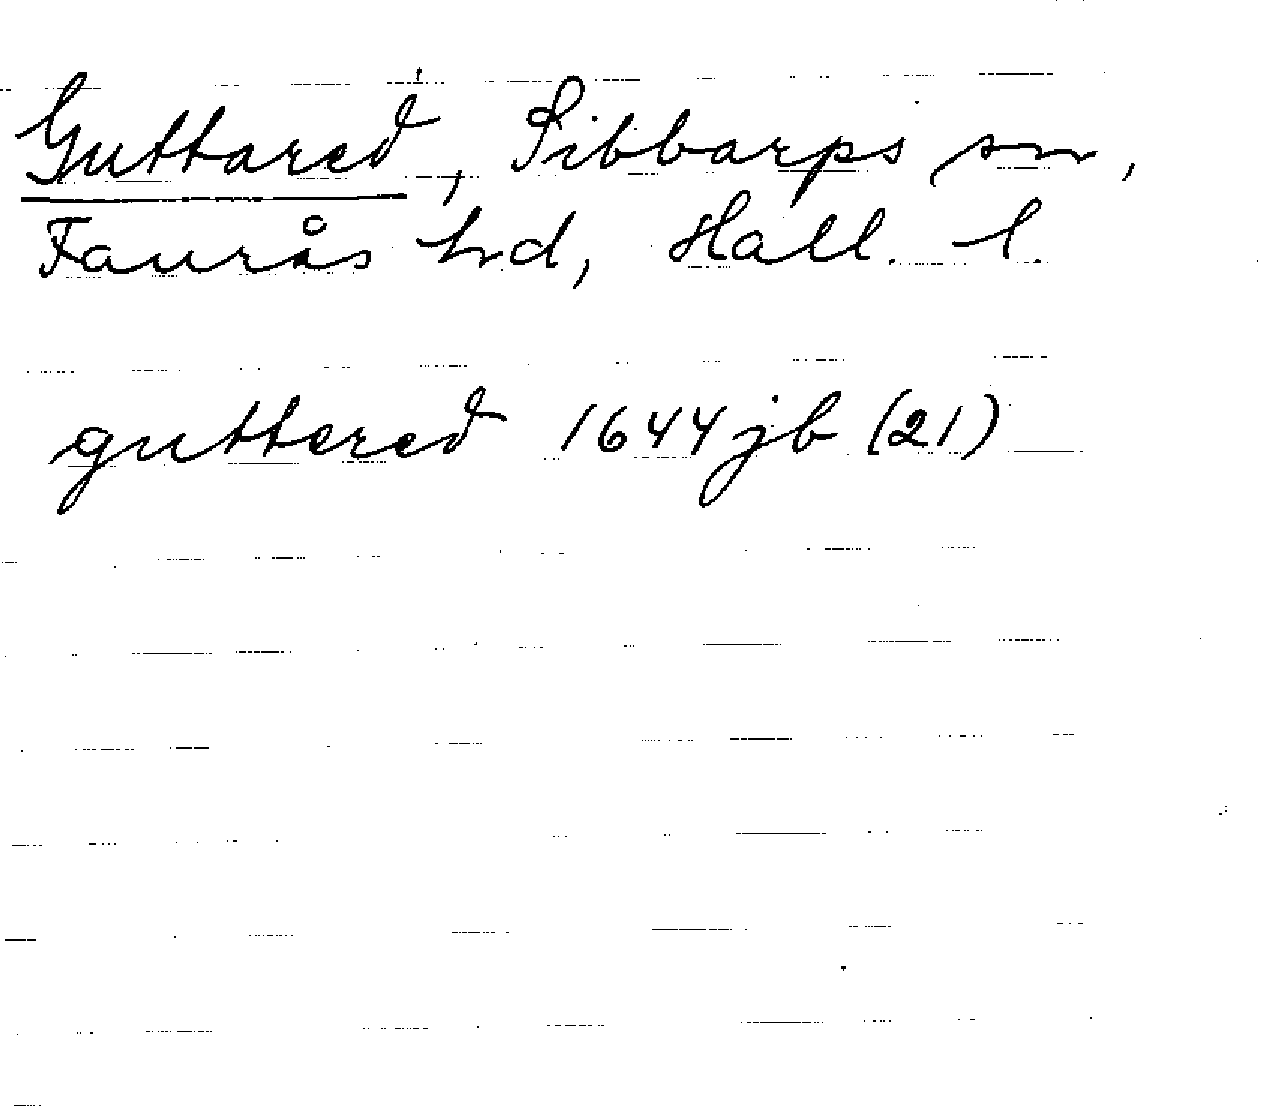 Guttared, Sibbarps sn,
Faurås hrd, Hall. l.
guttered 1644 jb (21)